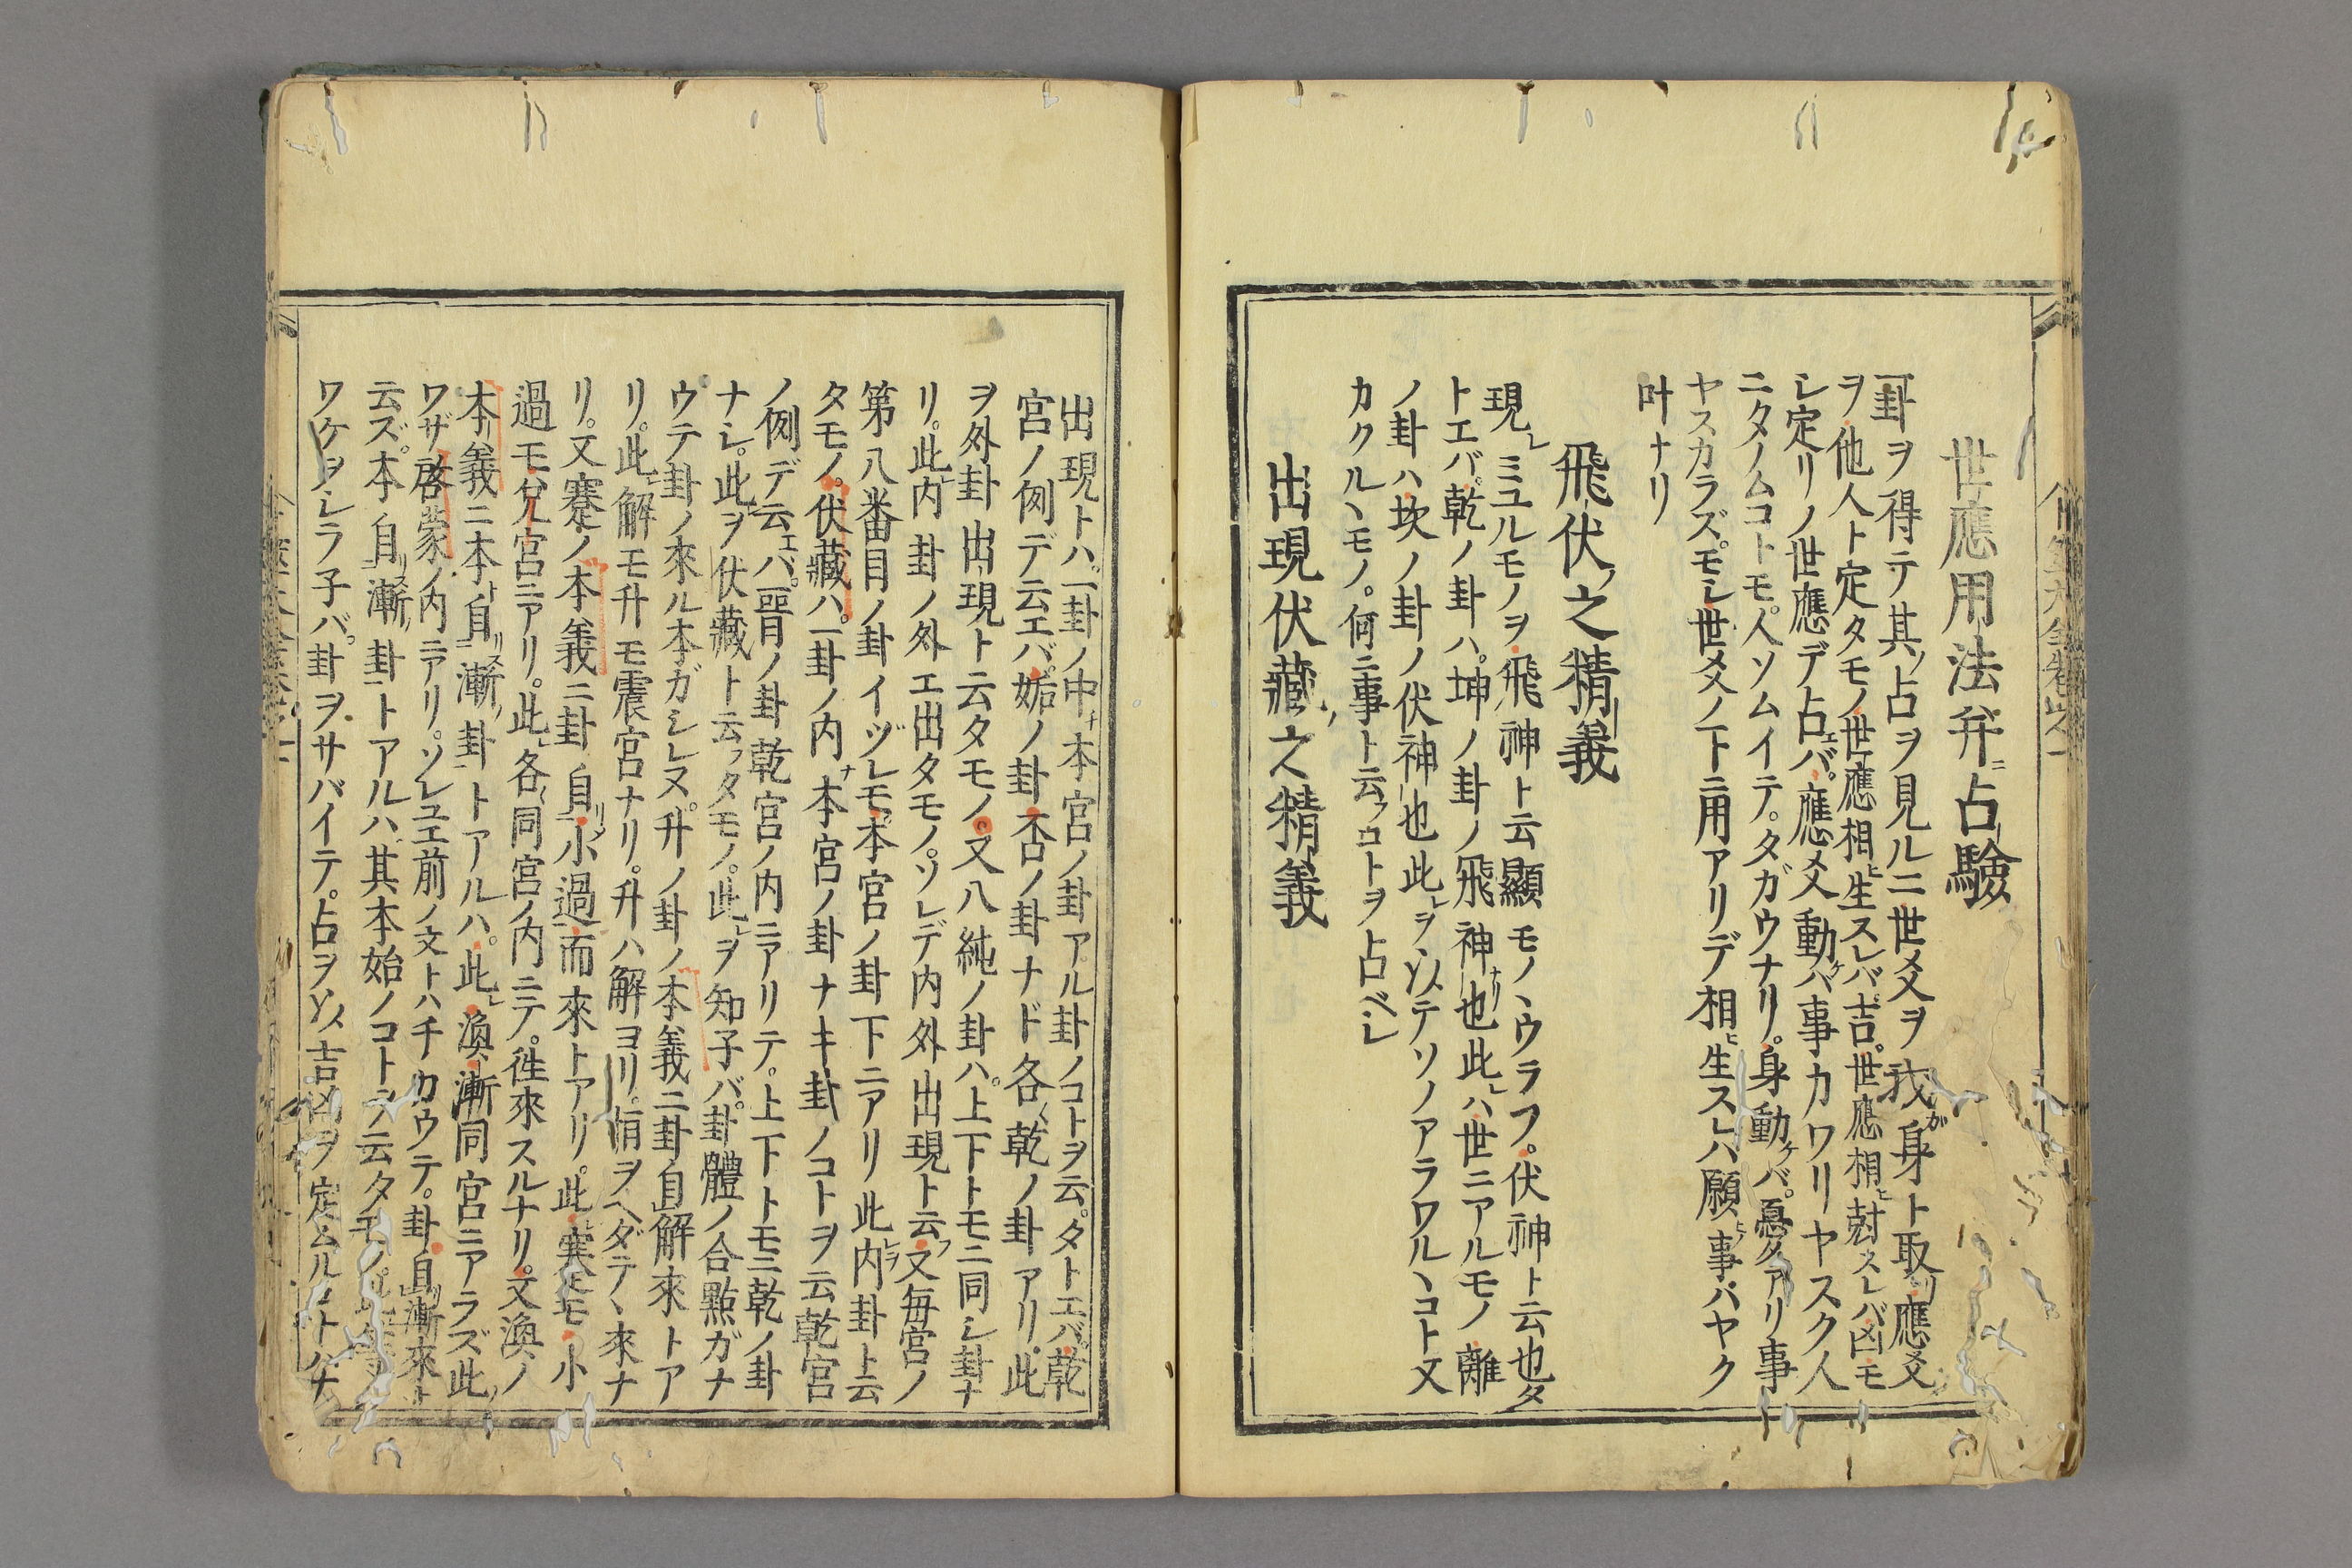 世應用法并ニ占驗
一卦ヲ得テ其ノ占ヲ見ルニ世爻ヲ我ガ身ト取リ應爻
ヲ他人ト定タモノ世應相ヒ生スレバ吉。世應相ヒ尅スレバ凶モ
シ定リノ世應デ占エバ。應爻動ケバ事カワリヤスク人
ニタノムコトモ。人ソムイテ。タガウナリ。身動ケバ。憂タアリ事
ヤスカラズ。モシ世爻ノ下ニ用アリデ相ヒ生スレハ願ヒ事バヤク
叶ナリ
飛伏ノ之精義
現レミユルモノヲ飛神ト云顯モノヽウラフ。伏神ト云也タ
トエバ。乾ノ卦ハ。坤ノ卦ノ飛神ナリ也此レハ世ニアルモノ離
ノ卦ハ坎ノ卦ノ伏神也此レヲ以テソノアラワルヽコト又
カクルヽモノ。何ニ事ト云フコトヲ占ベシ
出現伏藏ノ之精義
出現トハ。一卦ノ中ナ本宮ノ卦アル卦ノコトヲ云。タトエバ。乾
宮ノ例デ云エバ。姤ノ卦否ノ卦ナド各〱乾ノ卦アリ。此
ヲ外卦出現ト云タモノ。又八純ノ卦ハ。上下トモニ同シ卦ナ
リ。此レ内卦ノ外エ出タモノ。ソレデ内外出現ト云フ又毎宮ノ
第八番目ノ卦イヅレモ。本宮ノ卦下ニアリ此レヲ内卦ト云
タモノ。伏藏ハ。一卦ノ内ナ本宮ノ卦ナキ卦ノコトヲ云乾宮
ノ例デ云エバ。晉ノ卦乾宮ノ内ニアリテ。上下トモニ乾ノ卦
ナシ。此レヲ伏藏ト云フタモノ。此レヲ知子バ。卦體ノ合點ガナ
ウテ卦ノ來ル本ガシレヌ。升ノ卦ノ本義ニ卦自解來トア
リ。此レ解モ升モ震宮ナリ。升ハ解ヨリ。恒ヲヘダテヽ來ナ
リ。又蹇ノ本義ニ卦自リス小過而來トアリ。此レ蹇モ小
過モ兌宮ニアリ。此レ各〱同宮ノ内ニテ。徃來スルナリ。又渙ノ
本義ニ本ナ自リス漸卦トアルハ。此レ渙漸同宮ニアラズ此
ワザ啓蒙ノ内ニアリ。ソレユエ前ノ文トハチカウテ。卦自漸來ト
云ズ。本自リス漸卦トアルハ。其本始ノコトヲ云タモノ。
ワケヲシラ子バ。卦ヲサバイテ。占ヲ以吉凶ヲ定ムル